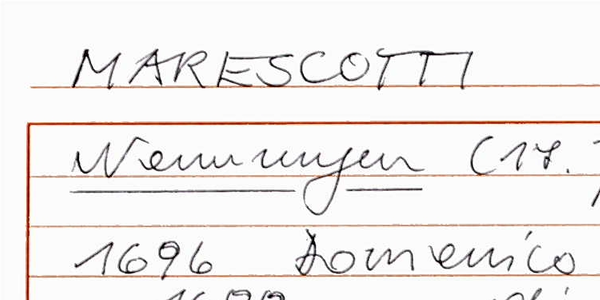 MARESCOTTI
Nennungen (17.
1696 Domenico